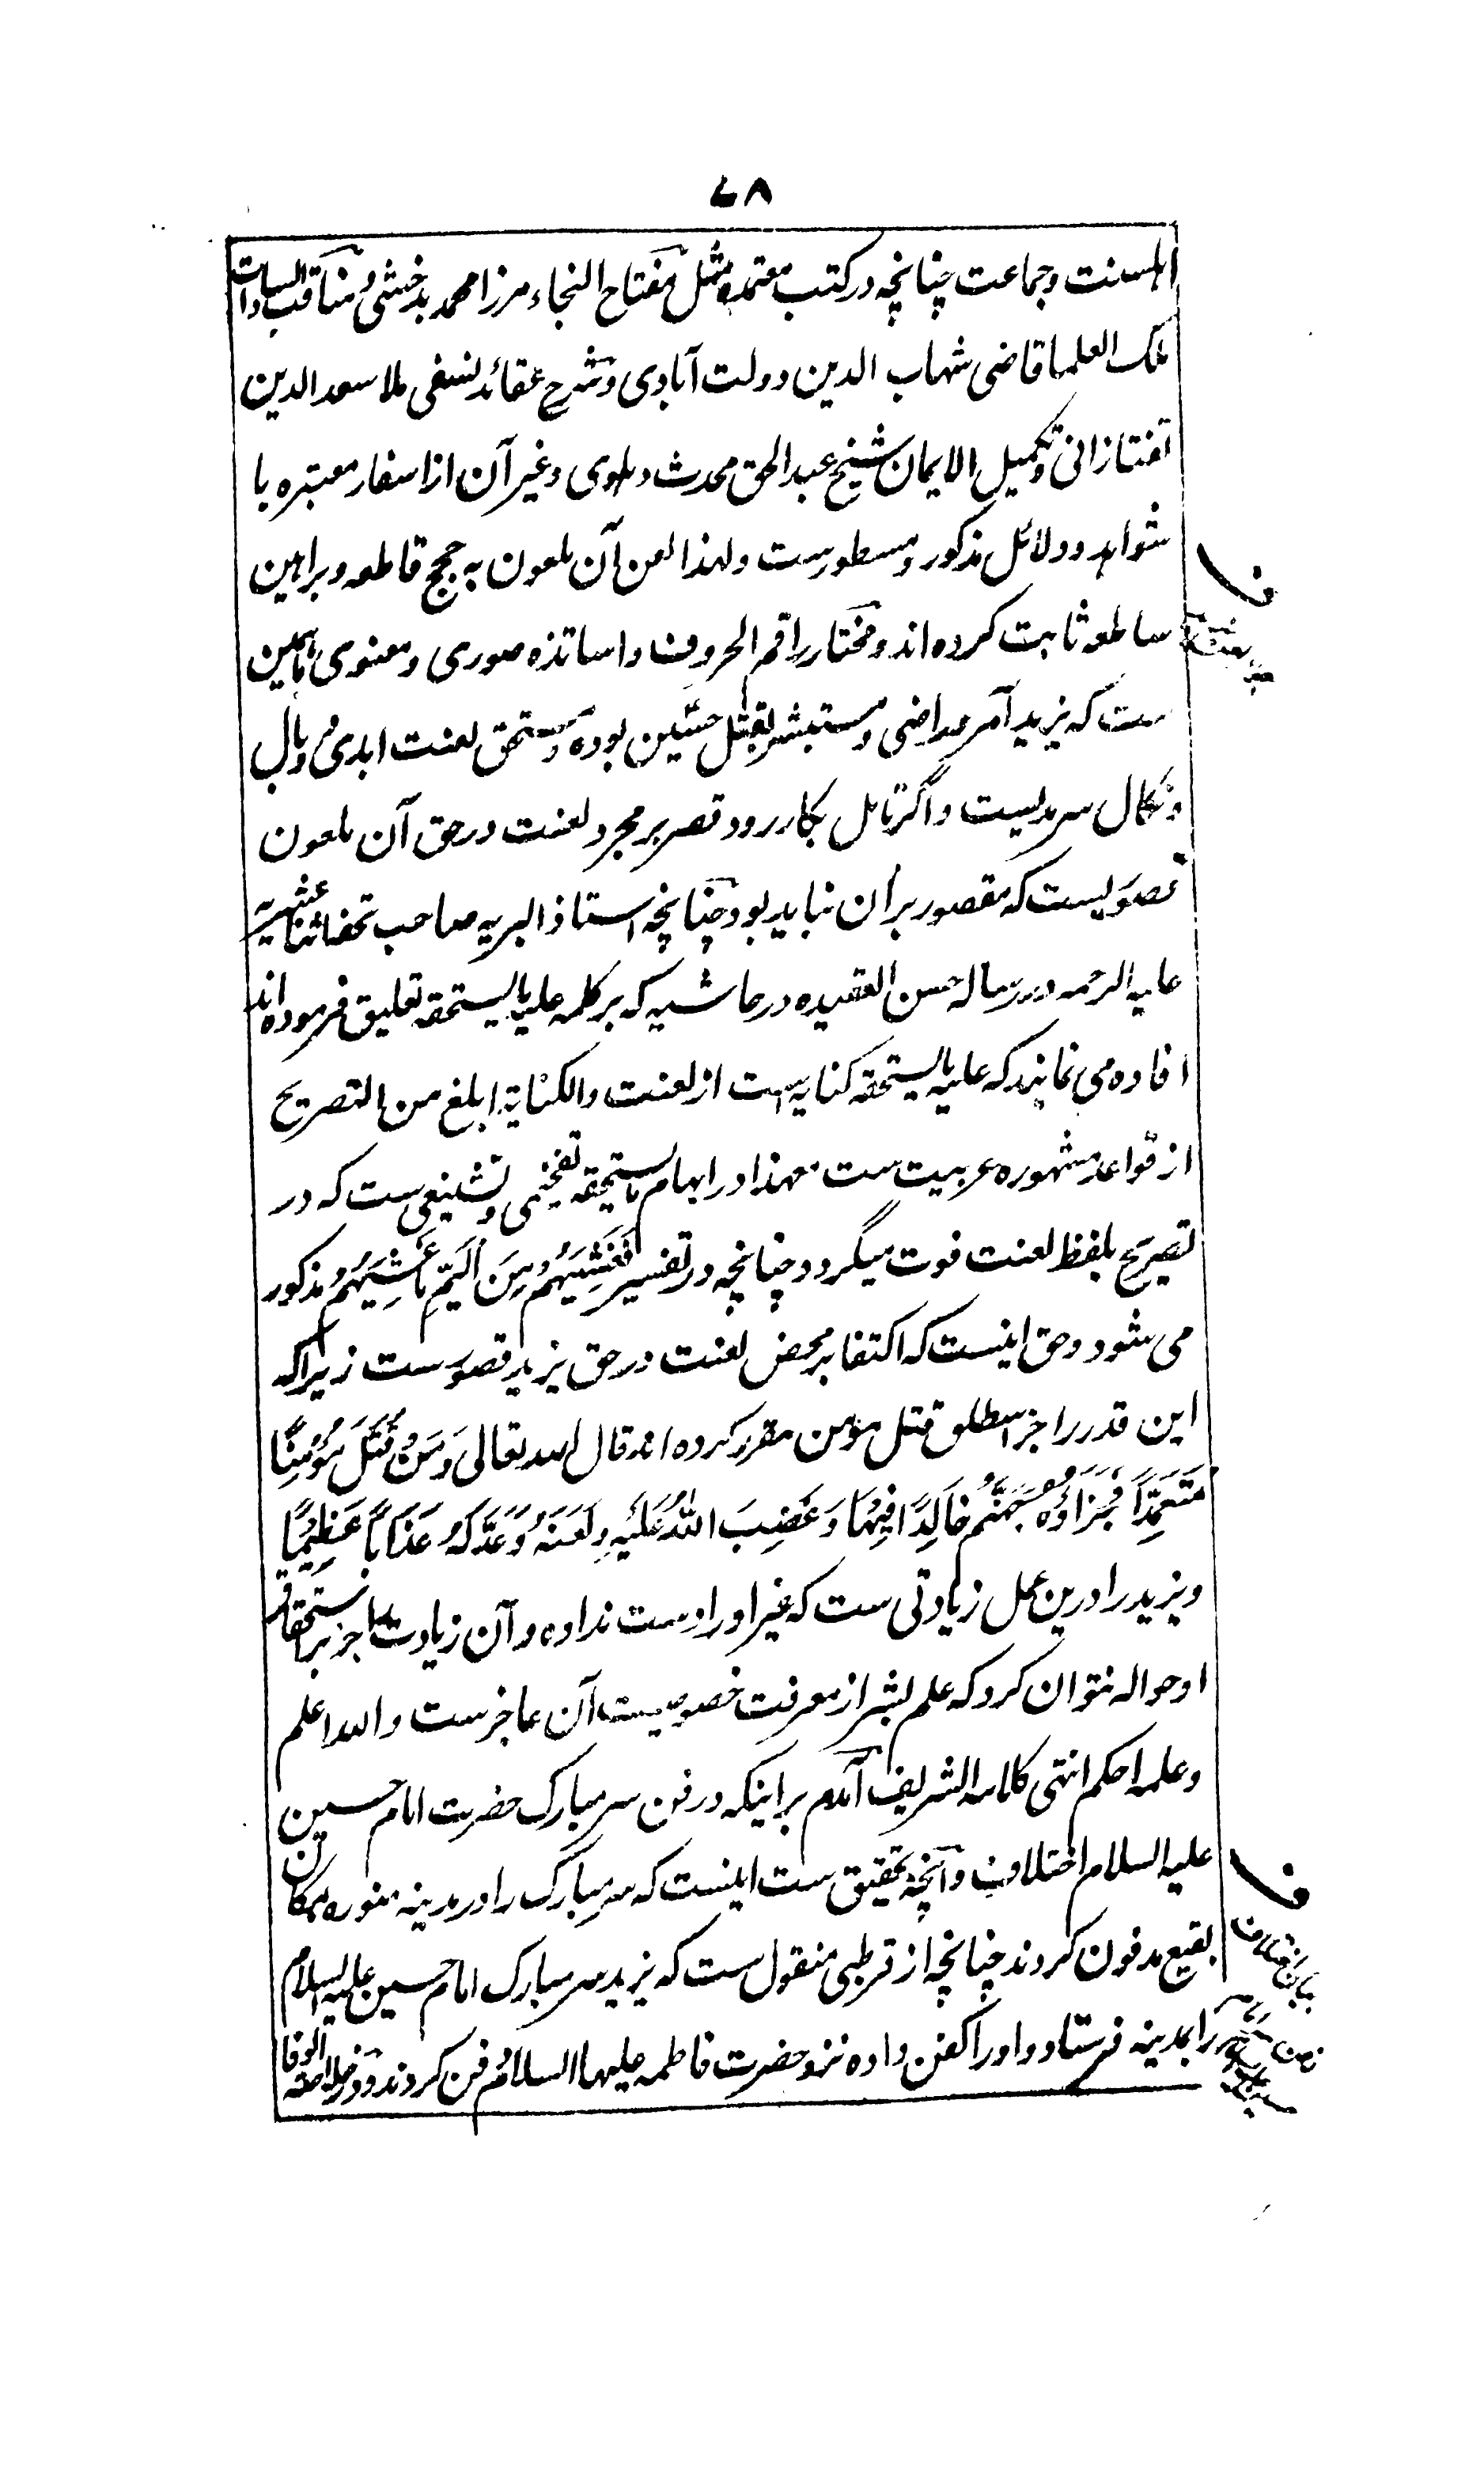 ۷۸
اہلسنت وجماعت چنانچہ در کتب معتمدہ مثل مفتاح النجاء مرزا محمد بدخشی و مناقب السادات
ملک العلما قاضی شہاب الدین دولت آبادی و شرح عقائد نسفی ملا سعد الدین
تفتازانی و تکمیل الایمان شیخ عبدالحق محدث دہلوی و غیر آن از اسفار معتبرہ با
شواہد و دلائل مذکور و مسطورست ولہذا لعن آن ملعون بہ حجج قاطعہ و براہین
ساطعہ ثابت کردہ اند و مختار راقم الحروف و اساتذہ صوری و معنوی ہمین
ست کہ یزید آمر و راضی و مستبشر بقتل حسین بودہ و مستحق لعنت ابدی و وبال
و نکال سرمدیست و اگر تامل بکار رود قصر بر مجرد لعنت در حق آن ملعون
قصوریست کہ مقصور بر آن نباید بود چنانچہ استاذ البریہ صاحب تحفہ اثنا عشریہ
علیہ الرحمہ در رسالہ حسن العقیدہ در حاشیہ کہ بر کلمہ علیہ ما یستحقہ تعلیق فرمودہ اند
افادہ می نمایند کہ علیہ ما یستحقہ کنایہ است از لعنت والکنایۃ ابلغ من التصریح
از قواعد مشہورہ عربیت ست معہذا در ابہام ما یستحقہ تفخیمی و تشنیعی ست کہ در
تصریح بلفظ لعنت فوت میگردد چنانچہ در تفسیر فَغَشِیَہُمْ مِنَ الْیَمِّ مَا غَشِیَہُمْ مذکور
می شود و حق اینست کہ اکتفا بر محض لعنت در حق یزید قصورست زیرا کہ
این قدر را جزا مطلق قتل مؤمن مقرر کردہ اند قال اللہ تعالی وَمَنْ یَّقْتُلْ مُؤْمِنًا
مُتَعَمِّدًا فَجَزَاؤُہُ جَہَنَّمُ خَالِدًا فِیْہَا وَغَضِبَ اللہُ عَلَیْہِ وَلَعَنَہُ وَاَعَدَّ لَہُ عَذَابًا عَظِیْمًا
و یزید را درین عمل زیادتی ست کہ غیر او را دست ندادہ و آن زیادت را جز بر استحقاق
او حوالہ نتوان کرد کہ علم بشر از معرفت خصوصیت آن عاجزست واللہ اعلم
وعلمہ احکم انتہی کلامہ الشریف آمدم بر اینکہ در دفن سر مبارک حضرت امام حسین
علیہ السلام اختلاف و آنچہ تحقیق ست اینست کہ سر مبارک را در مدینہ منورہ بمکان
بقیع مدفون کردند چنانچہ از قرطبی منقول ست کہ یزید سر مبارک امام حسین علیہ السلام
را بمدینہ فرستاد و او را کفن دادہ نزد حضرت فاطمہ علیہما السلام دفن کردند و در خلاصۃ الوفا
ف
ف